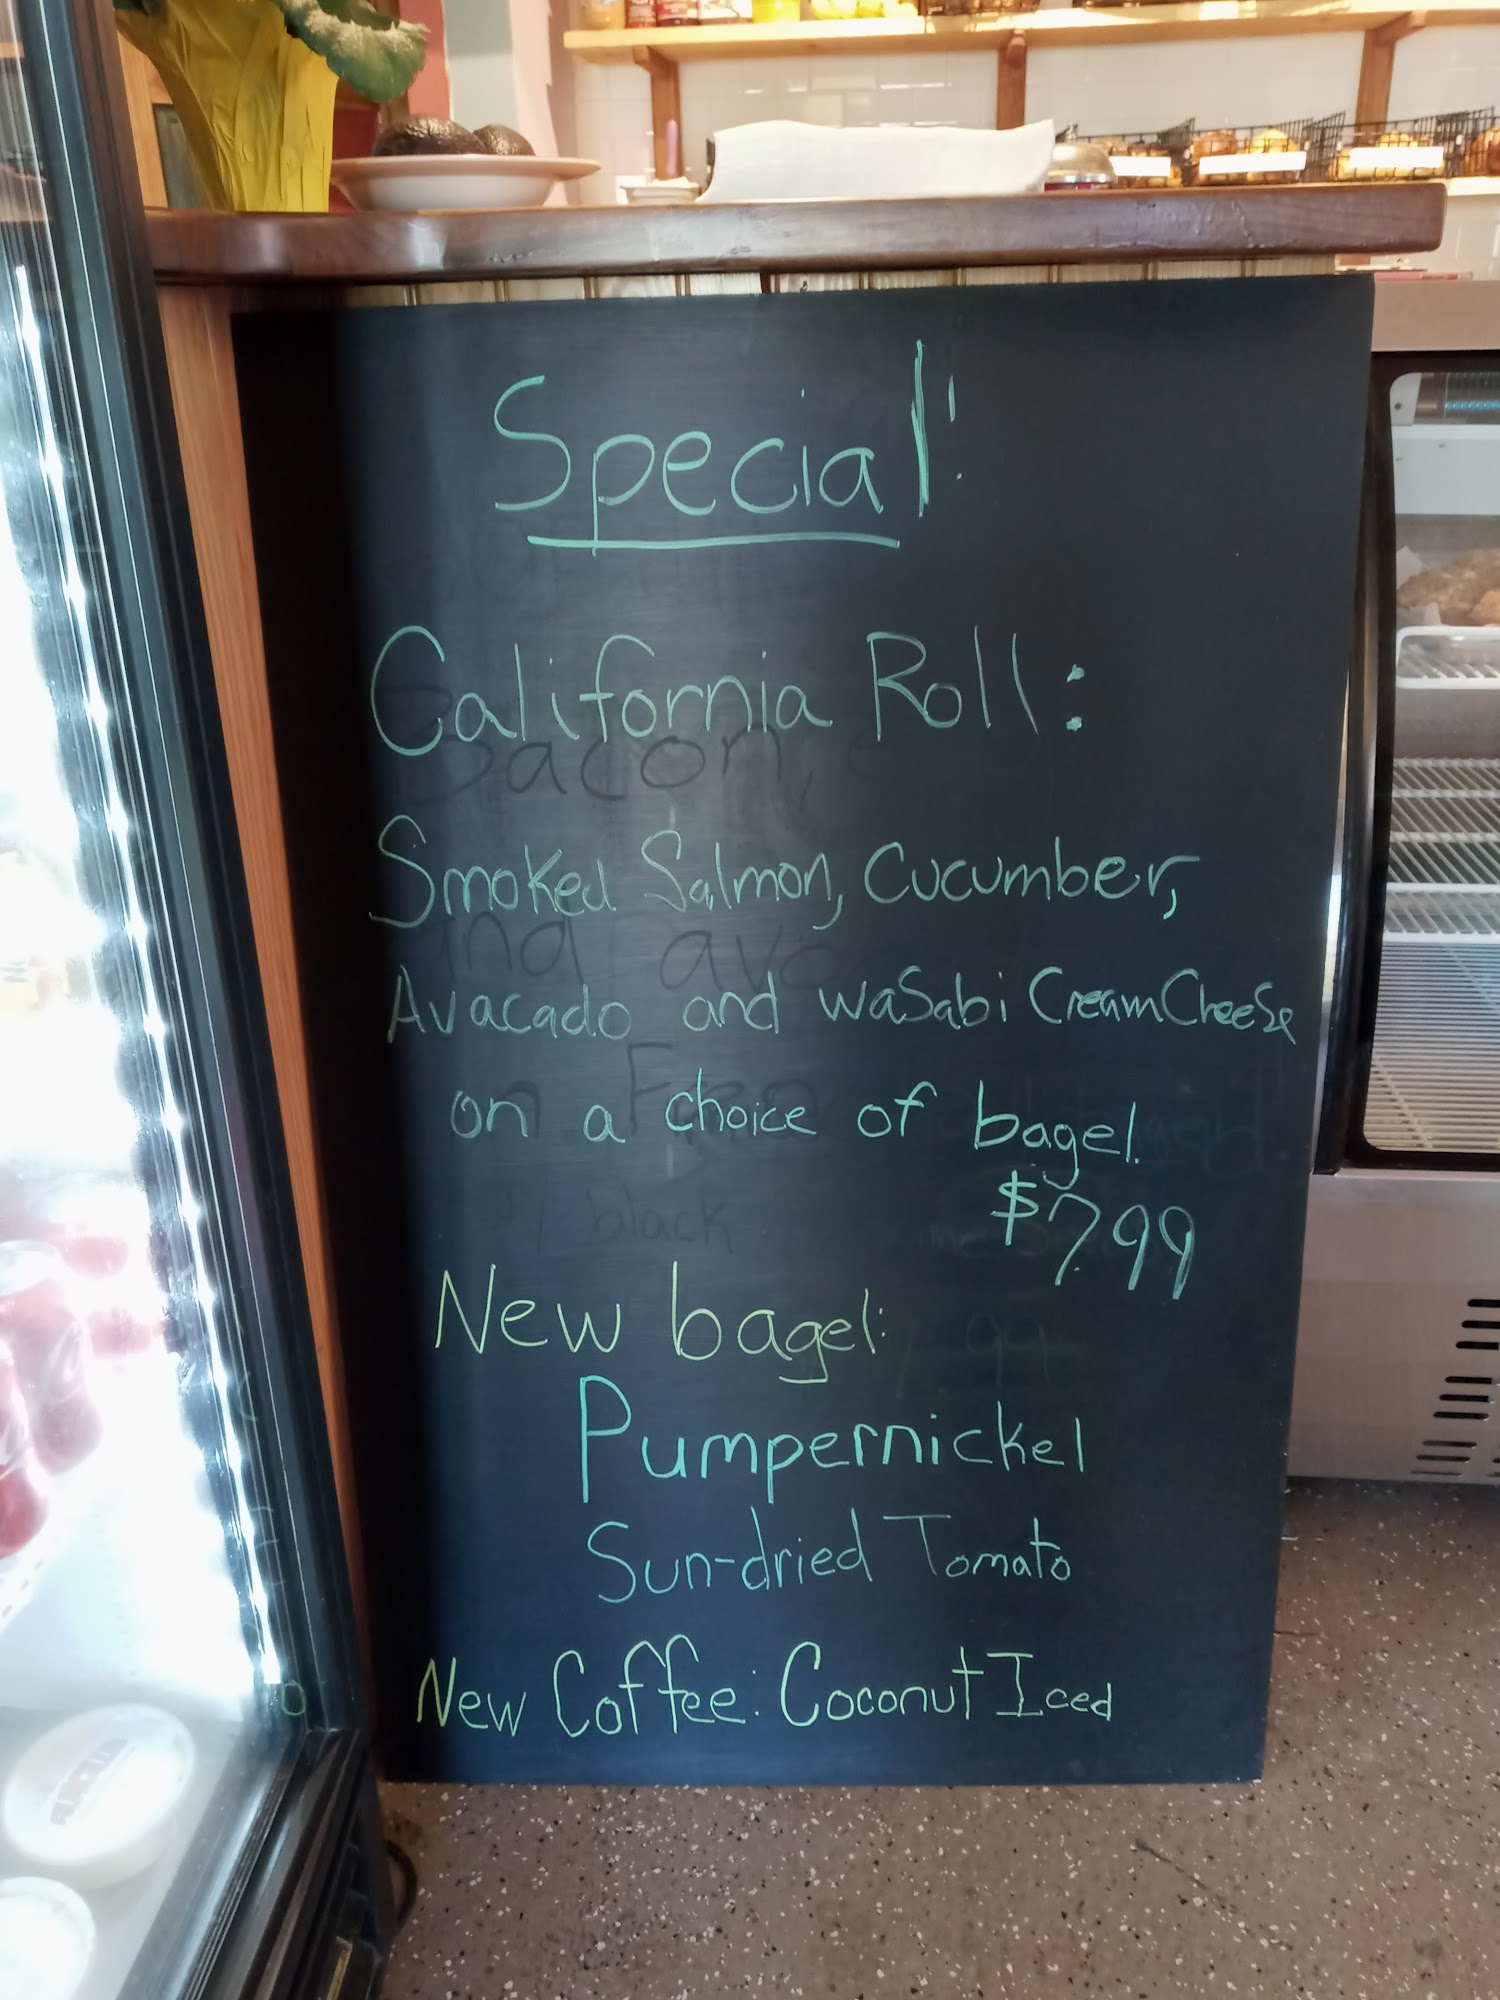 Special!
California Roll:
Smoked Salmon, Cucumber,
Avacado and wasabi Cream Cheese
on a choice of bagel.
$7.99
New bagel:
Pumpernickel
Sun-dried Tomato
New Coffee: Coconut Iced